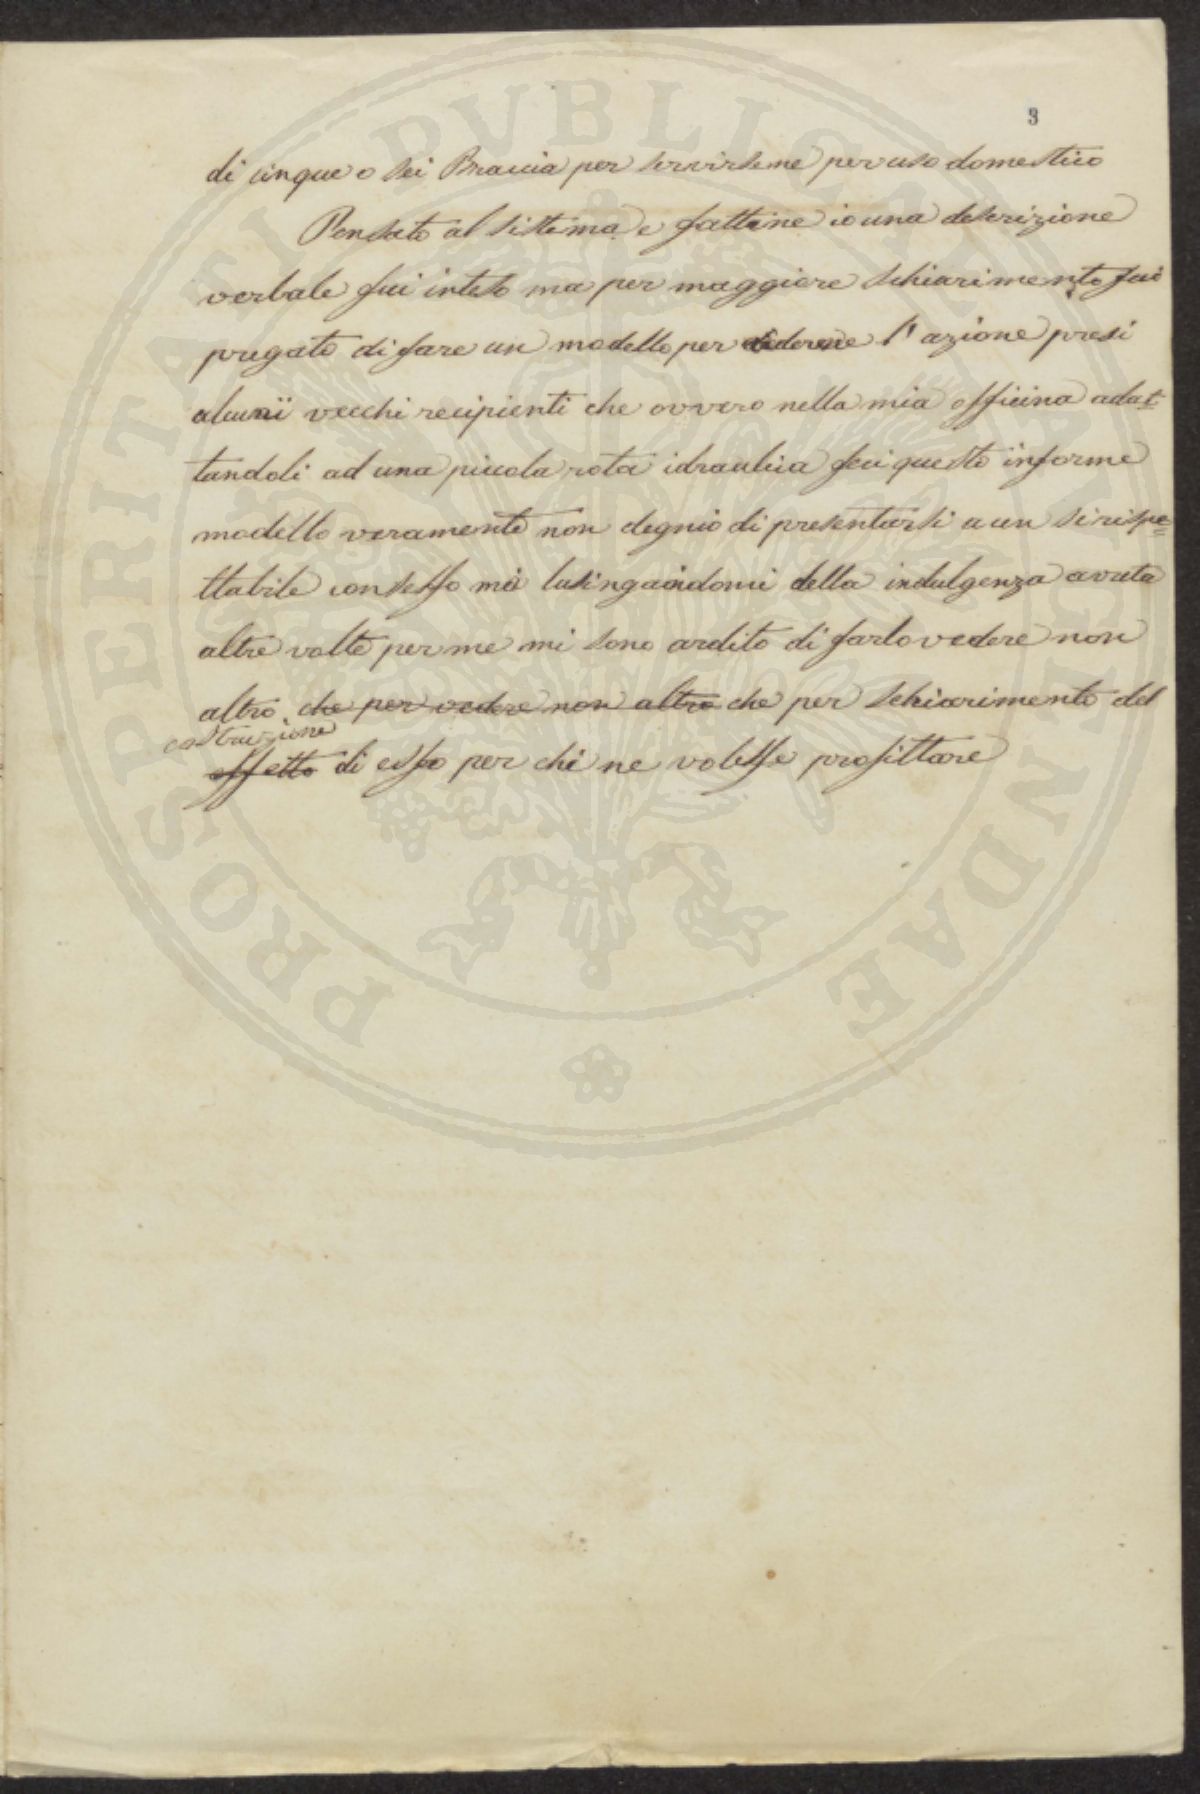 3
di cinque o sei Braccia per servirseme per uso domestico
Pensato al sistema e fattine io una descrizione
verbale fui inteso ma per maggiore schiarimento fui
pregato di fare un modello per vederene l'azione presi
alcunii vecchi recipienti che ovvero nella mia officina adat-
tandoli ad una piccola rota idraulica feci questo informe
modello veramente non degnio di presentarsi a un si rispe=
ttabile consesso mà lusingandomi della indulgenza avuta
altre volte per me mi sono ardito di farlo vedere non
altro che per vedere non altro che per schiarimento del
costruzione
effetto di esso per chi ne volesse profittare
PROSPERITATI PVBLICAE AVGENDAE